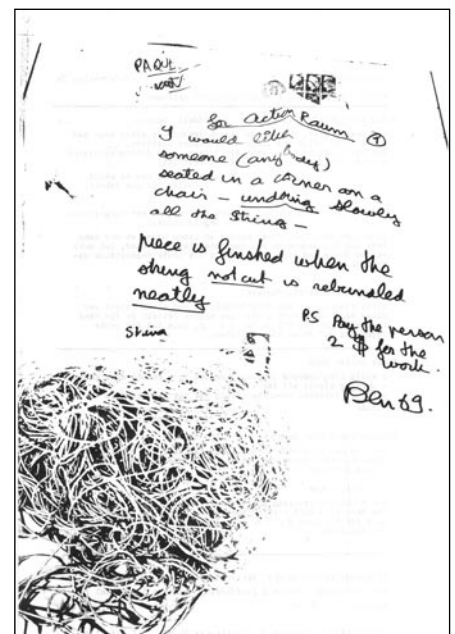 PAQUE
for action Raum
I would like
someone (anybody)
seated in a corner on a
chair - undoing slowly
all the strings -
piece is finished when the
string not cut is rebundled
neatly
PS Pay the person
2 $ for the
work.
String
Ben 69.